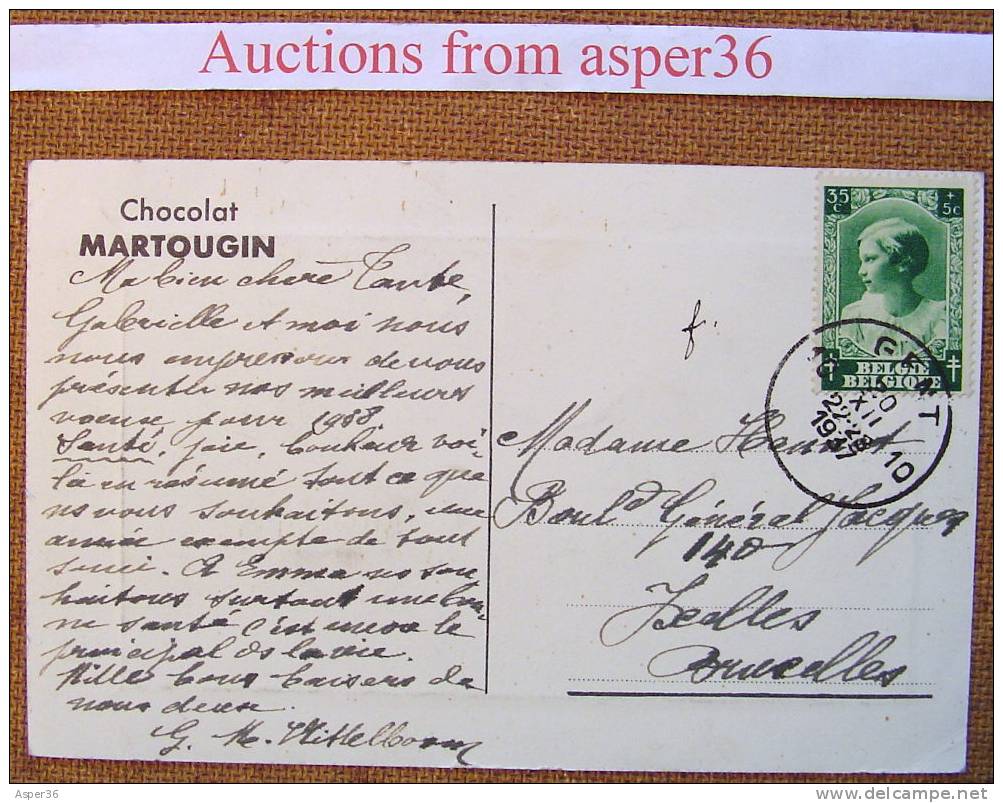 Auctions from asper36
Chocolat
MARTOUGIN
Ma bien chère Tante,
Gabrielle et moi nous
nous empressons de vous
présenter nos meilleurs
voeux pour 1938
Santé, joie, bonheur voi-
là en résumé tout ce que
ns vous souhaitons, une
année exempte de tout
souci. A Emma ns sou
haitons surtout une bon-
ne santé c'est encore le
principal ds la vie.
Mille bons baisers de
nous deux.
G. M. Mittelboom
f.
35
c
+
5c
BELGIË
BELGIQUE
GENT
10
XII
1937
Madame
Boul^d Général Jacques
140
Ixelles
Bruxelles
Asper36
delcampe.net